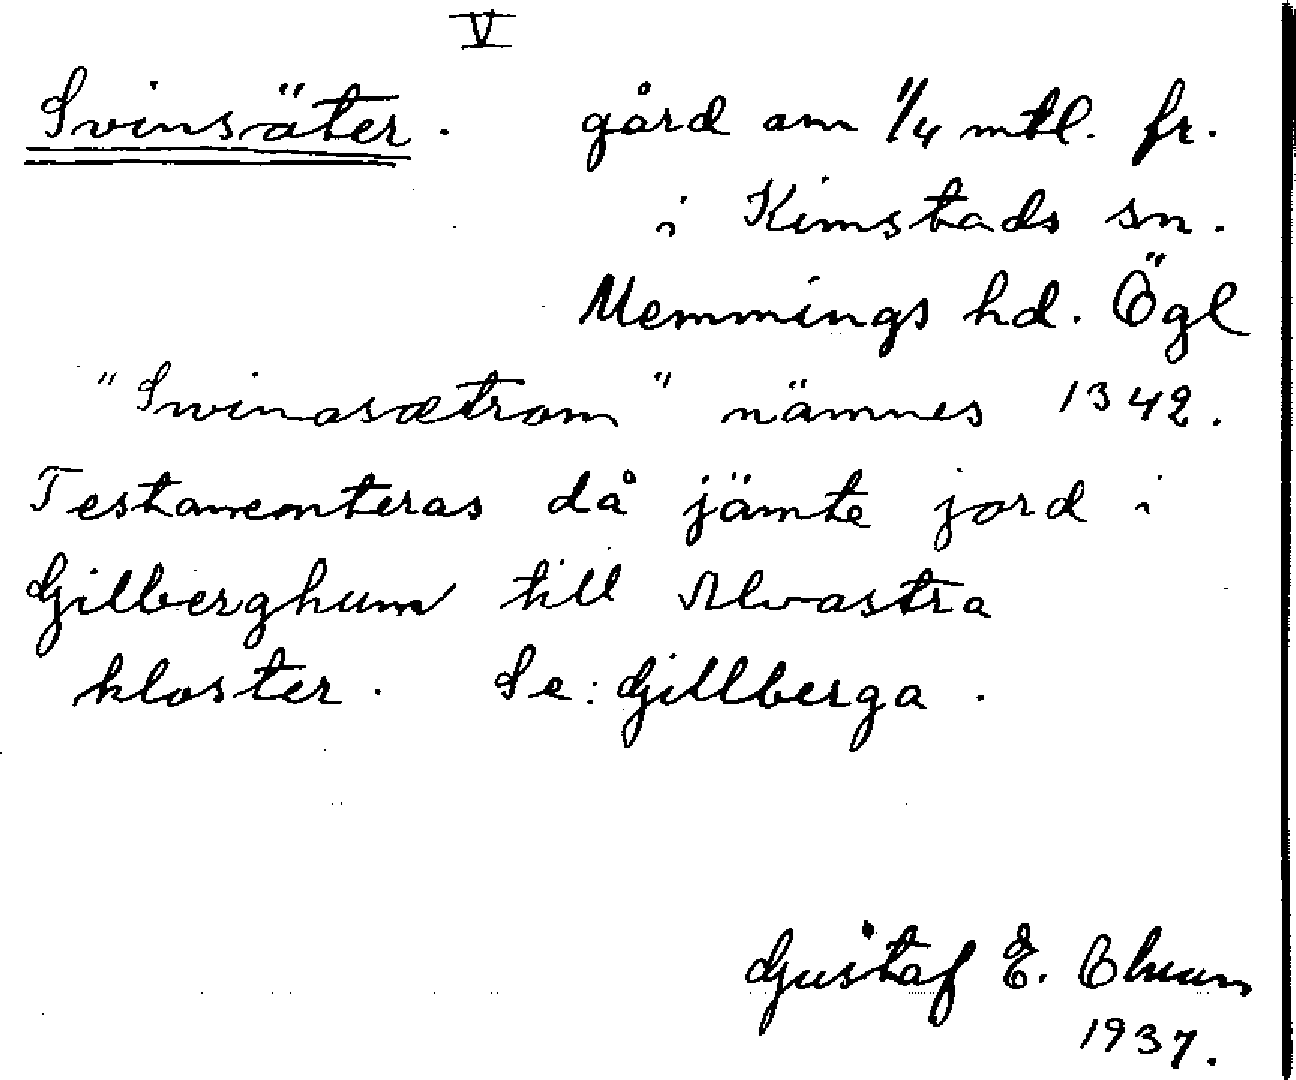 V
Svinsäter. gård om 1/4 mtl. fr.
i Kimstads sn.
Memmings hd. Ögl
"Svinasætrom" nämnes 1342.
Testamenteras då jämte jord i
Gilberghum till Alvastra
kloster. Se: Gillberga.
Gustaf E.
1937.